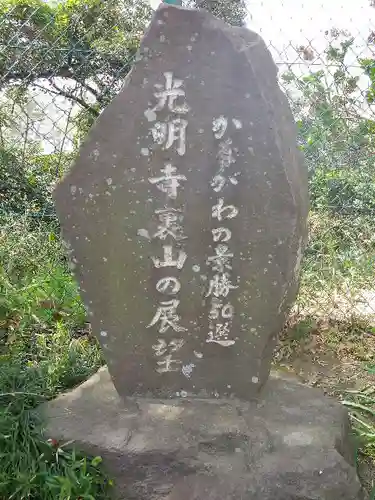 かながわの景勝50選
光明寺裏山の展望